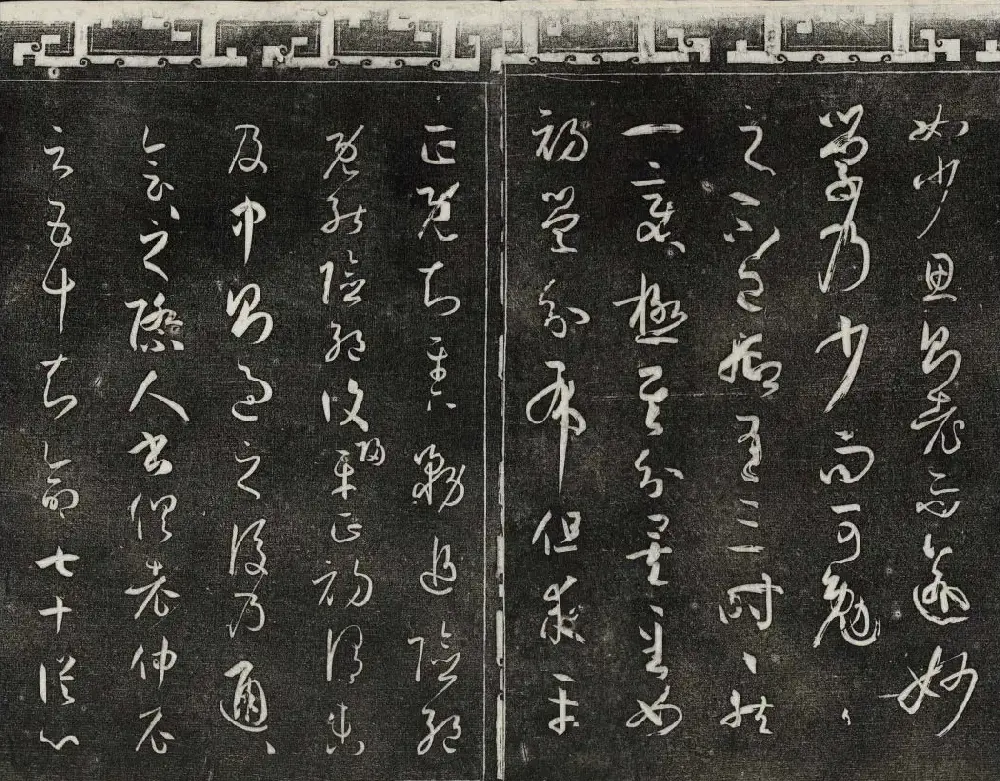 如少思則老而逾妙
學乃少而可勉々
之不已抑有三時々然
一變極其分矣至如
初學分布但求平
正既知平正務追險絕
既能險絕復歸平正初謂未
及中則過之後乃通々
會々之際人書俱老仲尼
云五十知命七十從心